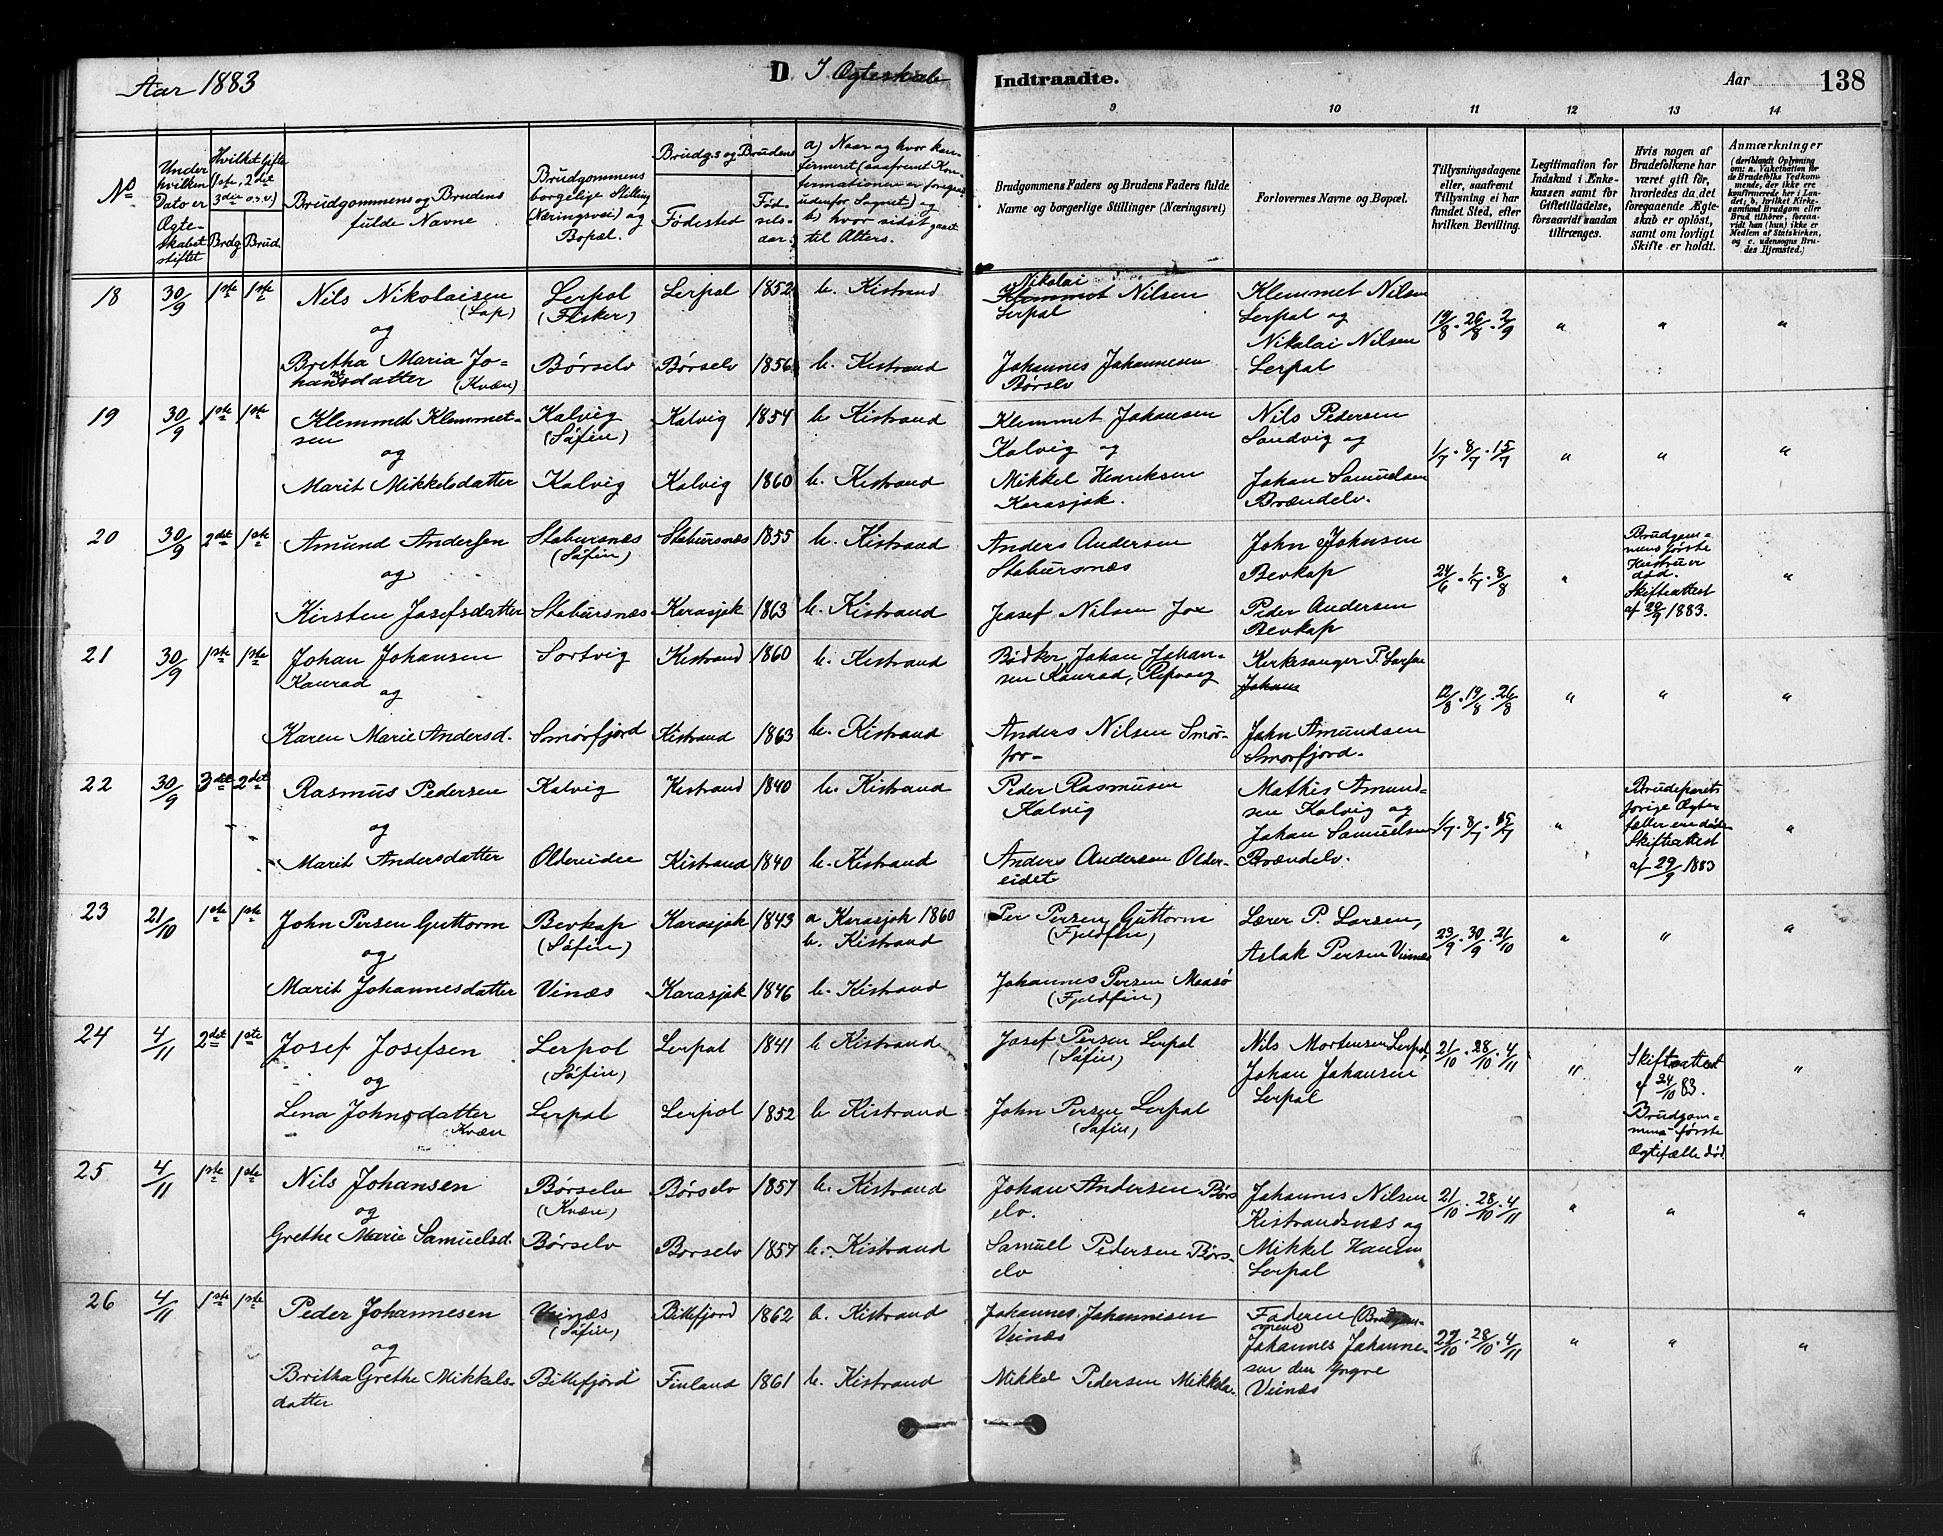 Aar 1883 D I Ægteskab Indtraadte. Aar 138
9 10 11 12 13 14
No
Under hvilken Dato er Ægteskabet stiftet
Hvilket Gifte 1ste, 2det 3die o.s.v)
Brdg. Brud.
Brudgommens og Brudens fulde Navne
Brudgommens borgelige Stilling (Næringsvei) og Bopæl.
Brudg.s og Brudens
Fødested
Fødselsaar.
a) Naar og hvor konfirmeret (saafremt Konfirmationen er foregaaet udenfor Sognet) og b) hvor sidst gaaet til Alters.
Brudgommens Faders og Brudens Faders fulde Navne og borgerlige Stillinger (Næringsvei)
Forlovernes Navne og Bopæl.
Tillysningsdagene eller, saafremt Tillysning ei har fundet Sted, efter hvilken Bevilling.
Legitimation for Indskud i Ænkekassen samt for Giftetilladelse, forsaavidt saadan tiltrænges.
Hvis nogen af Brudefolkene har været gift før, hvorledes da det foregaaende Ægteskab er opløst, samt om lovligt Skifte er holdt.
Anmærkninger (deriblandt Oplysning om: a. Vakcination for de Brudefolks Vedkommende, der ikke ere konfirmerede her i Landet; b. hvilket Kirkesamfund Brudgom eller Brud tilhører, forsaavidt han (hun) ikke er Medlem af Statskirken, og c. udensogns Brudes Hjemsted.)
18 30/9 1ste 1ste Nils Nikolaisen (Lap) Lerpol (Fisker) Lerpol 1852 b. Kistrand Nikolai Klemmet Nilsen Lerpal Klemmet Nilsen Lerpal og 19/8 · 26/8 · 2/9 " " "
og
Bretha Maria Johannesdatter (Kvæn) Børselv Børselv 1856 b. Kistrand Johannes Johannesen Børselv Nikolai Nilsen Lerpal
19 30/9 1ste 1ste Klemmet Klemmetsen Kalvig (Søfin) Kalvig 1854 b. Kistrand Klemmet Johansen Kalvig og Nils Pedersen Sandvig og 1/7 · 8/7 · 15/7 " " "
og
Marit Mikkelsdatter Kalvig Kalvig 1860 b. Kistrand Mikkel Henriksen Karasjok. Johan Samuelsen Brændelv.
20 30/9 2det 1ste Amund Andersen Stabursnæs (Søfin) Stabursnæs 1855 b. Kistrand Anders Andersen Stabursnæs John Johnsen Bevkap 24/6 · 1/7 · 8/8 " Brudgommens første Hustru er død. Skifteattest af 29/9 1883. "
og
Kirsten Josefsdatter Stabursnæs Karasjok 1863 b. Kistrand Josef Nilsen Jox Peder Andersen Bevkap
21 30/9 1ste 1ste Johan Johansen Konrad Sortvig Kistrand 1860 b. Kistrand Bødker Johan Johansen Konrad, Repvaag Kirkesanger P. Larsen Johan 12/8 · 19/8 · 26/8 " " "
og
Karen Marie Andersd. Smørfjord Kistrand 1863 b. Kistrand Anders Nilsen Smørfjor- John Amundsen Smørfjord.
22 30/9 3det 2det Rasmus Pedersen Kalvig Kistrand 1840 b. Kistrand Peder Rasmusen Kalvig Mathis Amundsen Kalvig og 1/7 · 8/7 · 15/7 " Brudeparets forige Ægtefæller ere døde Skifteattest af 29/9 1883 "
og
Marit Andersdatter Oldereidee Kistrand 1840 b. Kistrand Anders Andersen Oldereidet Johan Samuelsen Brændelv.
23 21/10 1ste 1ste John Persen Guttorm Bevkap (Søfin) Karasjok 1843 a Karasjok 1860 b. Kistrand Per Persen Guttorm (Fjeldfin) Lærer P. Larsen, 23/9 · 30/9 · 21/10 " " "
og
Marit Johannesdatter Vinæs Karasjok 1846 b. Kistrand Johannes Persen Maasø (Fjeldfin) Aslak Persen Viinnæs
24 4/11 2det 1ste Josef Josefsen Lerpol (Søfin) Lerpol 1841 b Kistrand Josef Persen Lerpol (Søfin) Nils Mortensen Lerpol, 21/10 · 28/10 · 4/11 " Skifteattest af 24/10 83. Brudgommens første Ægtefælle død "
og
Lena Johnsdatter Kvæn Lerpol Lerpol 1852 b Kistrand John Persen Lerpol (Søfin) Johan Johansen Lerpol
25 4/11 1ste 1ste Nils Johansen Børselv (Kvæn) Børselv 1857 b. Kistrand Johan Andersen Børselv. Johannes Nilsen Kistrandsnæs og 21/10 · 28/10 · 4/11 " " "
og
Grethe Marie Samuelsd. Børselv Børselv 1857 b. Kistrand Samuel Pedersen Børselv Mikkel Hansen Lerpal
26 4/11 1ste 1ste Peder Johannesen Veinæs (Søfin) Billefjord 1862 b. Kistrand Johannes Johannesen Veinæs Faderen (Brudgommens) 27/10 · 28/10 · 4/11 " " "
og
Britha Grethe Mikkelsdatter Billefjord Finland 1861 b. Kistrand Mikkel Pedersen Mikkola. Johannes Johannesen den Yngre Veinæs